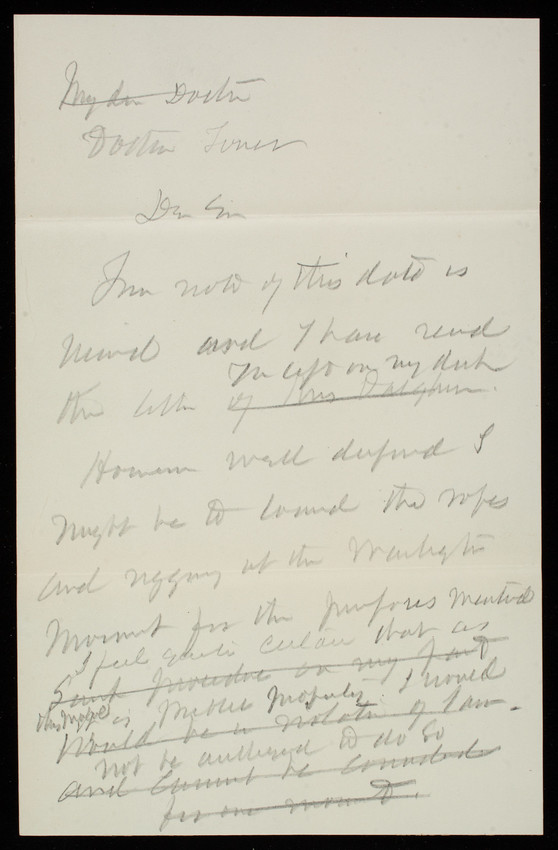 My dear Doctor
Doctor Toner
Dear Sir
Your note of this date is
received and I have read
You left on my desk
the letter of Mrs Dahlgren.
However well disposed I
might be to loaned the ropes
and rigging at the Washington
Monument for the purposes mentioned
I feel quite certain that as
Such procedure on my part
this rope is Public Property I would
would be a violation of law.
not be authorized to do so
and cannot be consented
for one moment.